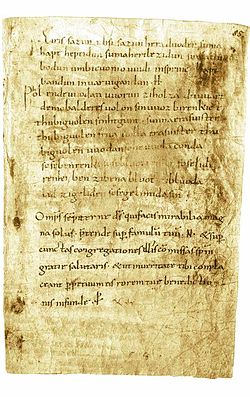 Eiris sazun idisi sazun hera duoder suma
hapt heptidun sumaherilezidun suma clu
bodun umbicuonio uuidi insprinc hapt
bandun inuar uigandun .H.
Phol endeuuodan uuorun ziholza du uuart
demobalderes uolon sinuuoz birenkict
thubiguolen sinhtgunt . sunnaerasuister
thubiguolen friia uolla erasuister thu
biguolen uuodan sohe uuola conda
sosebenrenki sose bluotrenki soselidi
renki ben zibena bluot zibluoda
lid zigeliden sosegelimidasin.
Omps sepiterne ds quifacis mirabilia mag
na solus pretende sup famulu tuu N & sup
cunctas congregationes illis comissas spm
gratie salutaris & ut inueritate tibi compla
ceant perpetuum eis rorem tue benedictio
nis infunde P